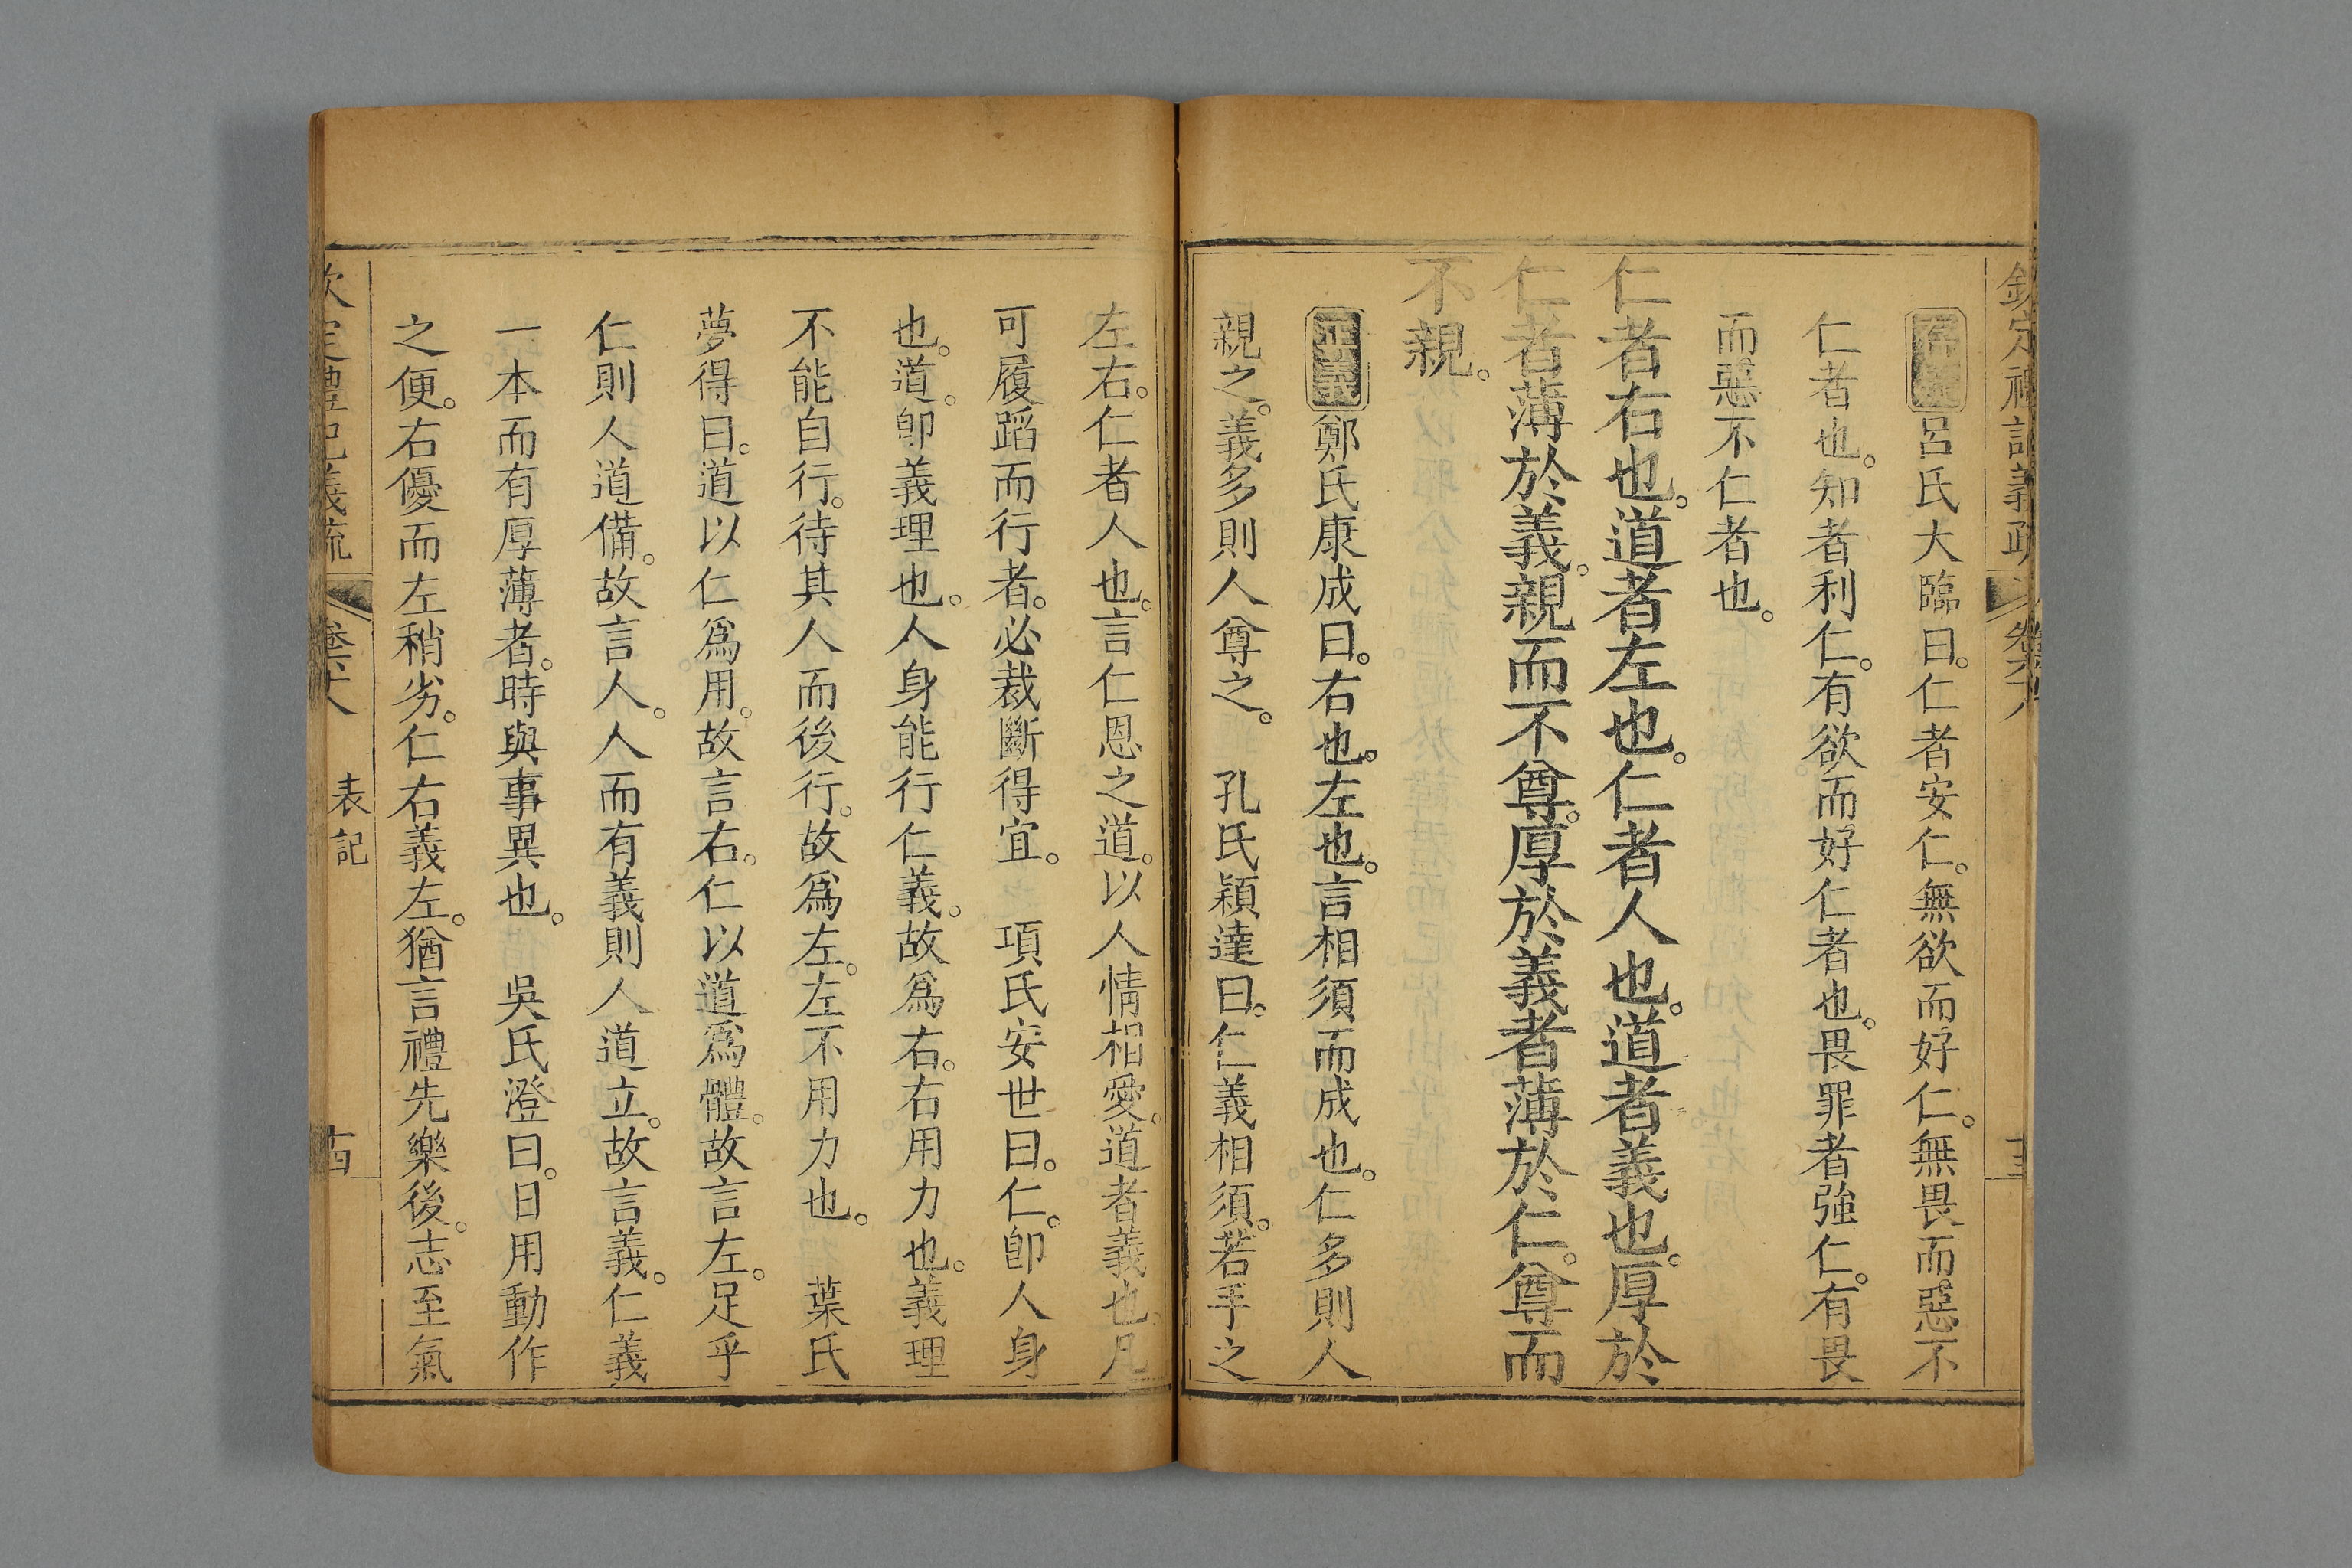 欽定禮記義疏 卷六十八 十三
呂氏大臨曰。仁者安仁。無欲而好仁。無畏而惡不
仁者也。知者利仁。有欲而好仁者也。畏罪者強仁。有畏
而惡不仁者也。
仁者右也。道者左也。仁者人也。道者義也。厚於
仁者薄於義。親而不尊。厚於義者薄於仁。尊而
不親。
正義鄭氏康成曰。右也。左也。言相須而成也。仁多則人
親之。義多則人尊之。 孔氏穎達曰。仁義相須。若手之
左右。仁者人也。言仁恩之道。以人情相愛。道者義也。凡
可履蹈而行者。必裁斷得宜。 項氏安世曰。仁。卽人身
也。道。卽義理也。人身能行仁義。故爲右。右用力也。義理
不能自行。待其人而後行。故爲左。左不用力也。 葉氏
夢得曰。道以仁爲用。故言右。仁以道爲體。故言左。足乎
仁則人道備。故言人。人而有義則人道立。故言義。仁義
一本而有厚薄者。時與事異也。 吳氏澄曰。日用動作
之便。右優而左稍劣。仁右義左。猶言禮先樂後。志至氣
欽定禮記義疏 卷六十八 表記 十四